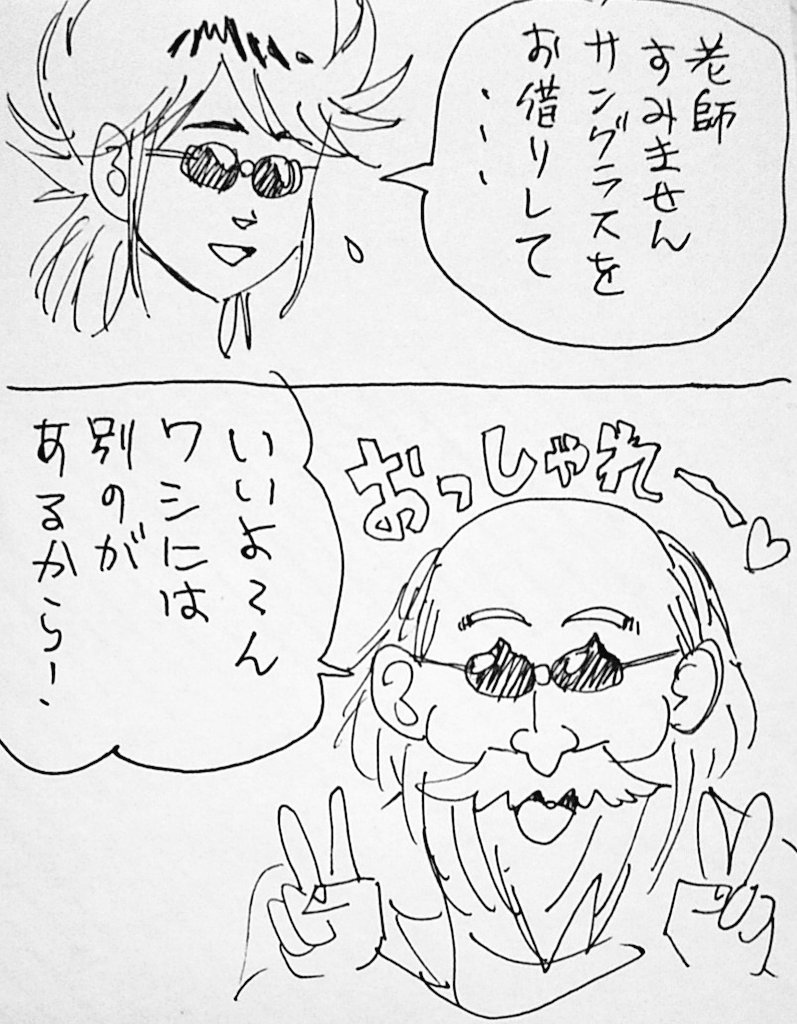 老師
すみません
サングラスを
お借りして
・・・
おっしゃれー♡
いいよ〜ん
ワシには
別のが
あるから!